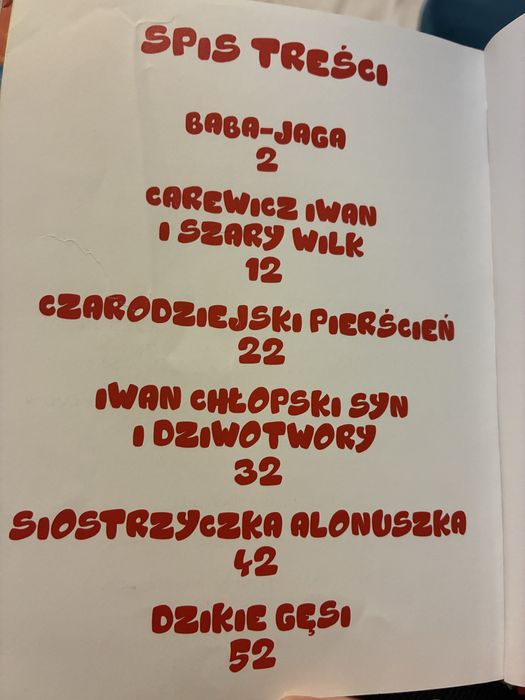 SPIS TREŚCI
BABA-JAGA
2
CAREWICZ IWAN
I SZARY WILK
12
CZARODZIEJSKI PIERŚCIEŃ
22
IWAN CHŁOPSKI SYN
I DZIWOTWORY
32
SIOSTRZYCZKA ALONUSZKA
42
DZIKIE GĘSI
52